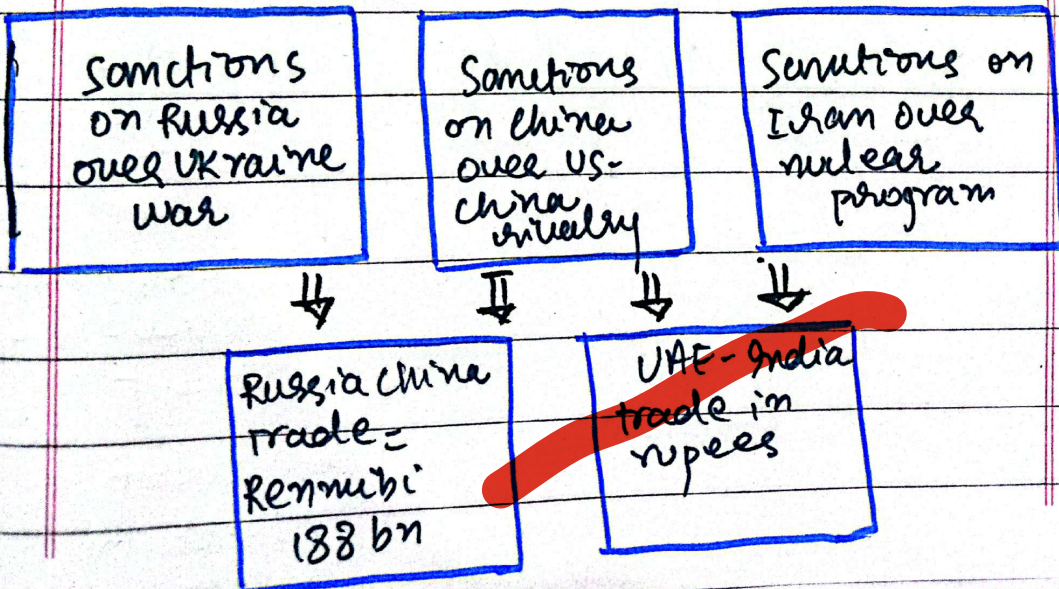 Sanctions
on Russia
over Ukraine
war
Sanctions
on China
over US-
China
rivalry
Sanctions on
Iran over
nulear
program
Russia China
Trade =
Renmibi
188 bn
UAE - India
trade in
rupees